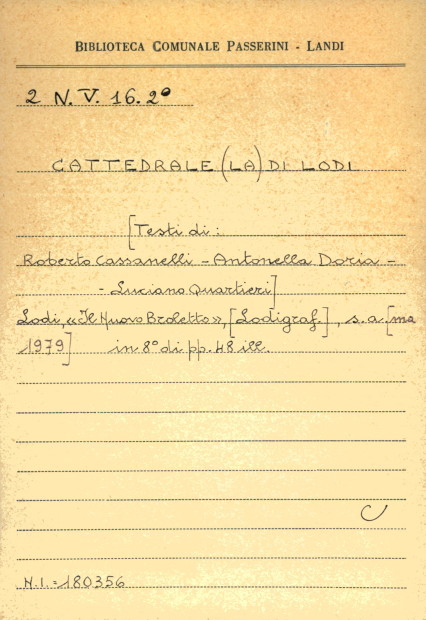 BIBLIOTECA COMUNALE PASSERINI - LANDI
2 N. V. 16. 2°
CATTEDRALE (LA) DI LODI
[Testi di:
Roberto Cassanelli - Antonella Doria -
- Luciano Quartieri]
Lodi, «Il Nuovo Broletto», [Lodigraf.], s. a. [ma
1979] in 8° di pp. 48 ill.
C
N. I. = 180356